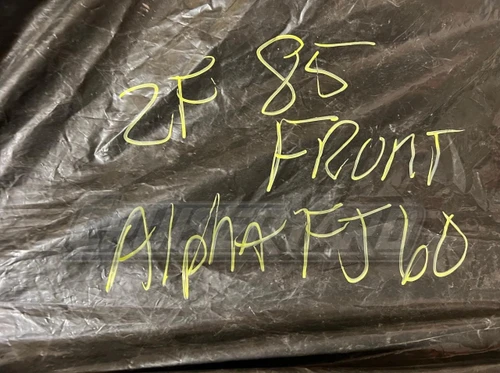 2F 85
FRONT
Alpha FJ60